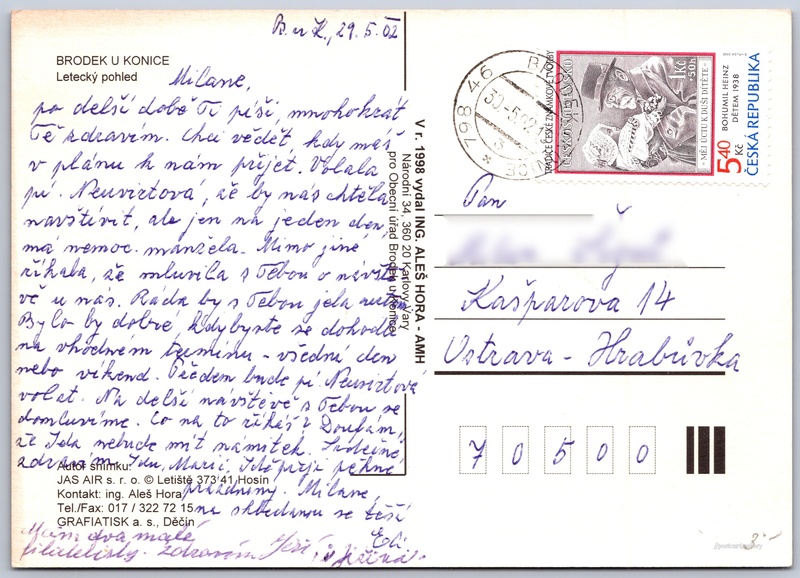 B. u K., 29. 5. 02
BRODEK U KONICE
Letecký pohled
Milane,
po delší době Ti píši, mnohokrát
Tě zdravím. Chci vědět, kdy máš
v plánu k nám přijet. Volala
pí. Neuvirtová, že by nás chtěla
navštívit, ale jen na jeden den,
má nemoc. manžela. Mimo jiné
říkala, že mluvila s Tebou o návště-
vě u nás. Ráda by s Tebou jela autem.
Bylo by dobré, kdybyste se dohodli
na vhodném termínu - všední den
nebo víkend. Předem bude pí. Neuvirtová
volat. Na delší návštěvě s Tebou se
domluvíme. Co na to říkáš? Doufám,
že Ida nebude mít námitek. Srdečně
zdravím Idu, Marii,
přeji pěkné
prázdniny. Milane,
na shledanou se těší
Edi
Autor snímku:
JAS AIR s. r. o. © Letiště 373 41 Hosín
Kontakt: ing. Aleš Hora
Tel./Fax: 017 / 322 72 15
GRAFIATISK a. s., Děčín
Mám dva malé
filatelisty. Zdravím Jiří
V r. 1998 vydal ING. ALEŠ HORA - AMH
Národní 34, 360 20 Karlovy Vary
pro Obecní úřad Brodek u Konice
798 46
30.-5.02
TRADICE ČESKÉ ZNÁMKOVÉ TVORBY
ČESKOSLOVENSKO
1 Kč
+50 h
MĚJ ÚCTU K DUŠI DÍTĚTE
BOHUMIL HEINZ
DĚTEM 1938
5,40 Kč
ČESKÁ REPUBLIKA
Pan
Kašparova 14
Ostrava - Hrabůvka
7 0 5 0 0
3.-